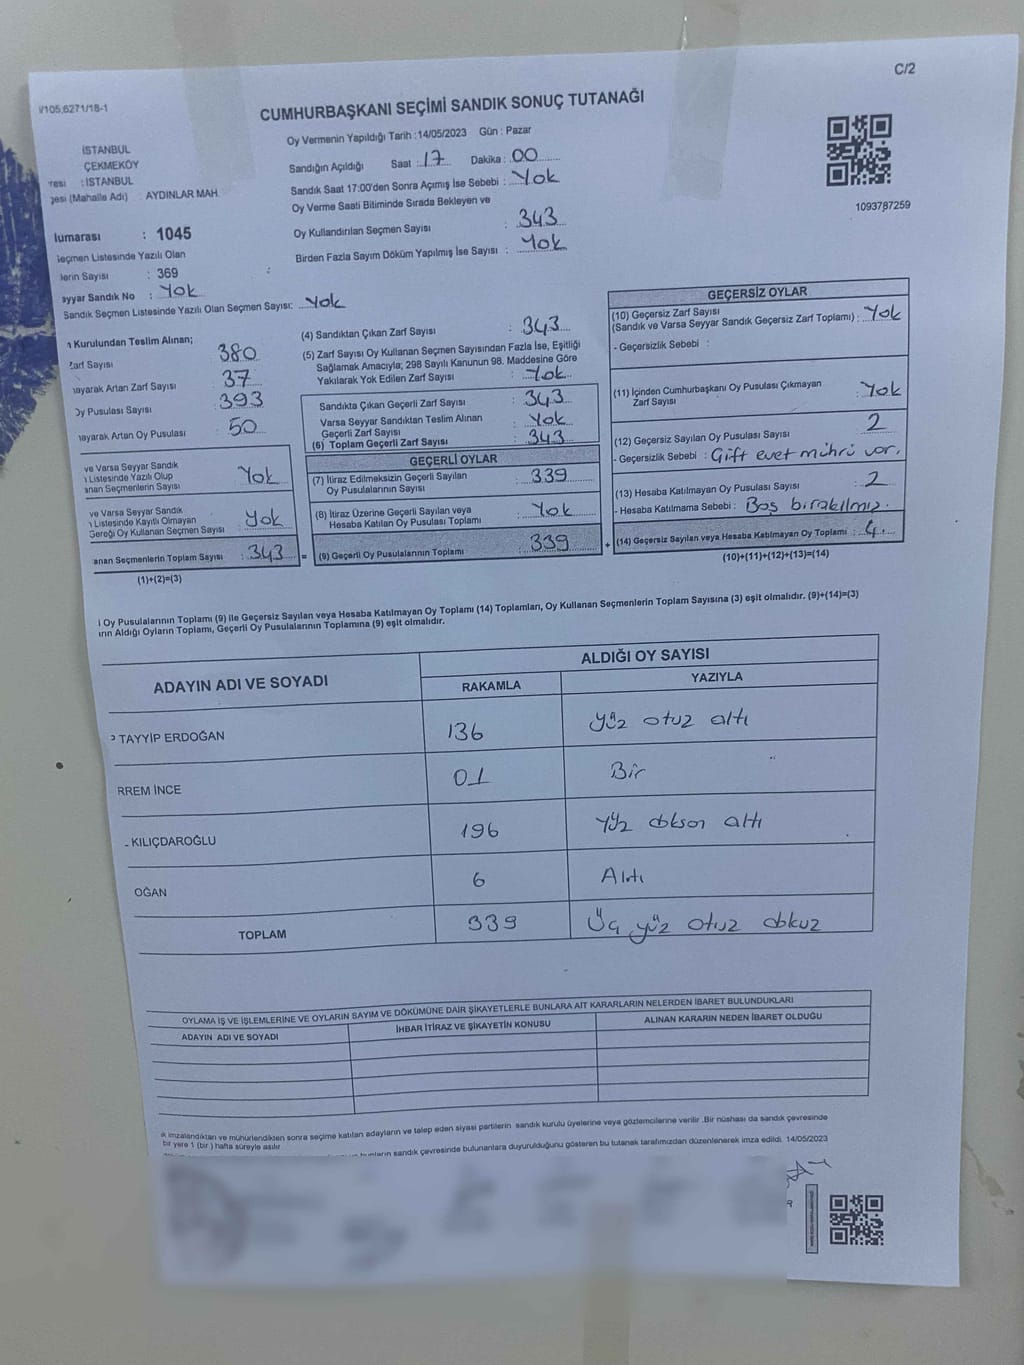 C/2
I/105.6271/18-1
CUMHURBAŞKANI SEÇİMİ SANDIK SONUÇ TUTANAĞI
Oy Vermenin Yapıldığı Tarih : 14/05/2023 Gün : Pazar
İSTANBUL
ÇEKMEKÖY
resi : İSTANBUL
(Mahalle Adı) : AYDINLAR MAH.
Sandığın Açıldığı Saat : 17 Dakika : 00
Sandık Saat 17:00'den Sonra Açımış İse Sebebi : Yok
Oy Verme Saati Bitiminde Sırada Bekleyen ve
Oy Kullandırılan Seçmen Sayısı : 343
Birden Fazla Sayım Döküm Yapılmış İse Sayısı : Yok
1093787259
lumarası : 1045
Seçmen Listesinde Yazılı Olan
lerin Sayısı : 369
ayyar Sandık No : Yok
Sandık Seçmen Listesinde Yazılı Olan Seçmen Sayısı: Yok
ı Kurulundan Teslim Alınan;
Zarf Sayısı 380
nayarak Artan Zarf Sayısı 37
Oy Pusulası Sayısı 393
nayarak Artan Oy Pusulası 50
ve Varsa Seyyar Sandık
ı Listesinde Yazılı Olup
anan Seçmenlerin Sayısı : Yok
ve Varsa Seyyar Sandık
ı Listesinde Kayıtlı Olmayan
Gereği Oy Kullanan Seçmen Sayısı : Yok
anan Seçmenlerin Toplam Sayısı : 343 =
(1)+(2)=(3)
(4) Sandıktan Çıkan Zarf Sayısı : 343
(5) Zarf Sayısı Oy Kullanan Seçmen Sayısından Fazla İse, Eşitliği
Sağlamak Amacıyla; 298 Sayılı Kanunun 98. Maddesine Göre
Yakılarak Yok Edilen Zarf Sayısı : Yok
Sandıkta Çıkan Geçerli Zarf Sayısı : 343
Varsa Seyyar Sandıktan Teslim Alınan
Geçerli Zarf Sayısı : Yok
(6) Toplam Geçerli Zarf Sayısı : 343
GEÇERLİ OYLAR
(7) İtiraz Edilmeksizin Geçerli Sayılan
Oy Pusulalarının Sayısı : 339
(8) İtiraz Üzerine Geçerli Sayılan veya
Hesaba Katılan Oy Pusulası Toplamı : Yok
(9) Geçerli Oy Pusulalarının Toplamı : 339 +
GEÇERSİZ OYLAR
(10) Geçersiz Zarf Sayısı
(Sandık ve Varsa Seyyar Sandık Geçersiz Zarf Toplamı) : Yok
- Geçersizlik Sebebi :
(11) İçinden Cumhurbaşkanı Oy Pusulası Çıkmayan
Zarf Sayısı : Yok
(12) Geçersiz Sayılan Oy Pusulası Sayısı : 2
- Geçersizlik Sebebi : Çift evet mührü var.
(13) Hesaba Katılmayan Oy Pusulası Sayısı : 2
- Hesaba Katılmama Sebebi : Boş bırakılmış.
(14) Geçersiz Sayılan veya Hesaba Katılmayan Oy Toplamı : 4
(10)+(11)+(12)+(13)=(14)
i Oy Pusulalarının Toplamı (9) ile Geçersiz Sayılan veya Hesaba Katılmayan Oy Toplamı (14) Toplamları, Oy Kullanan Seçmenlerin Toplam Sayısına (3) eşit olmalıdır. (9)+(14)=(3)
ının Aldığı Oyların Toplamı, Geçerli Oy Pusulalarının Toplamına (9) eşit olmalıdır.
ADAYIN ADI VE SOYADI
ALDIĞI OY SAYISI
RAKAMLA YAZIYLA
TAYYİP ERDOĞAN 136 Yüz otuz altı
RREM İNCE 01 Bir
KILIÇDAROĞLU 196 Yüz doksan altı
OĞAN 6 Altı
TOPLAM 339 Üç yüz otuz dokuz
OYLAMA İŞ VE İŞLEMLERİNE VE OYLARIN SAYIM VE DÖKÜMÜNE DAİR ŞİKAYETLERLE BUNLARA AİT KARARLARIN NELERDEN İBARET BULUNDUKLARI
ADAYIN ADI VE SOYADI İHBAR İTİRAZ VE ŞİKAYETİN KONUSU ALINAN KARARIN NEDEN İBARET OLDUĞU
ık imzalandıktan ve mühürlendikten sonra seçime katılan adayların ve talep eden siyasi partilerin sandık kurulu üyelerine veya gözlemcilerine verilir .Bir nüshası da sandık çevresinde
bir yere 1 (bir) hafta süreyle asılır
bunların sandık çevresinde bulunanlara duyurulduğunu gösteren bu tutanak tarafımızdan düzenlenerek imza edildi. 14/05/2023